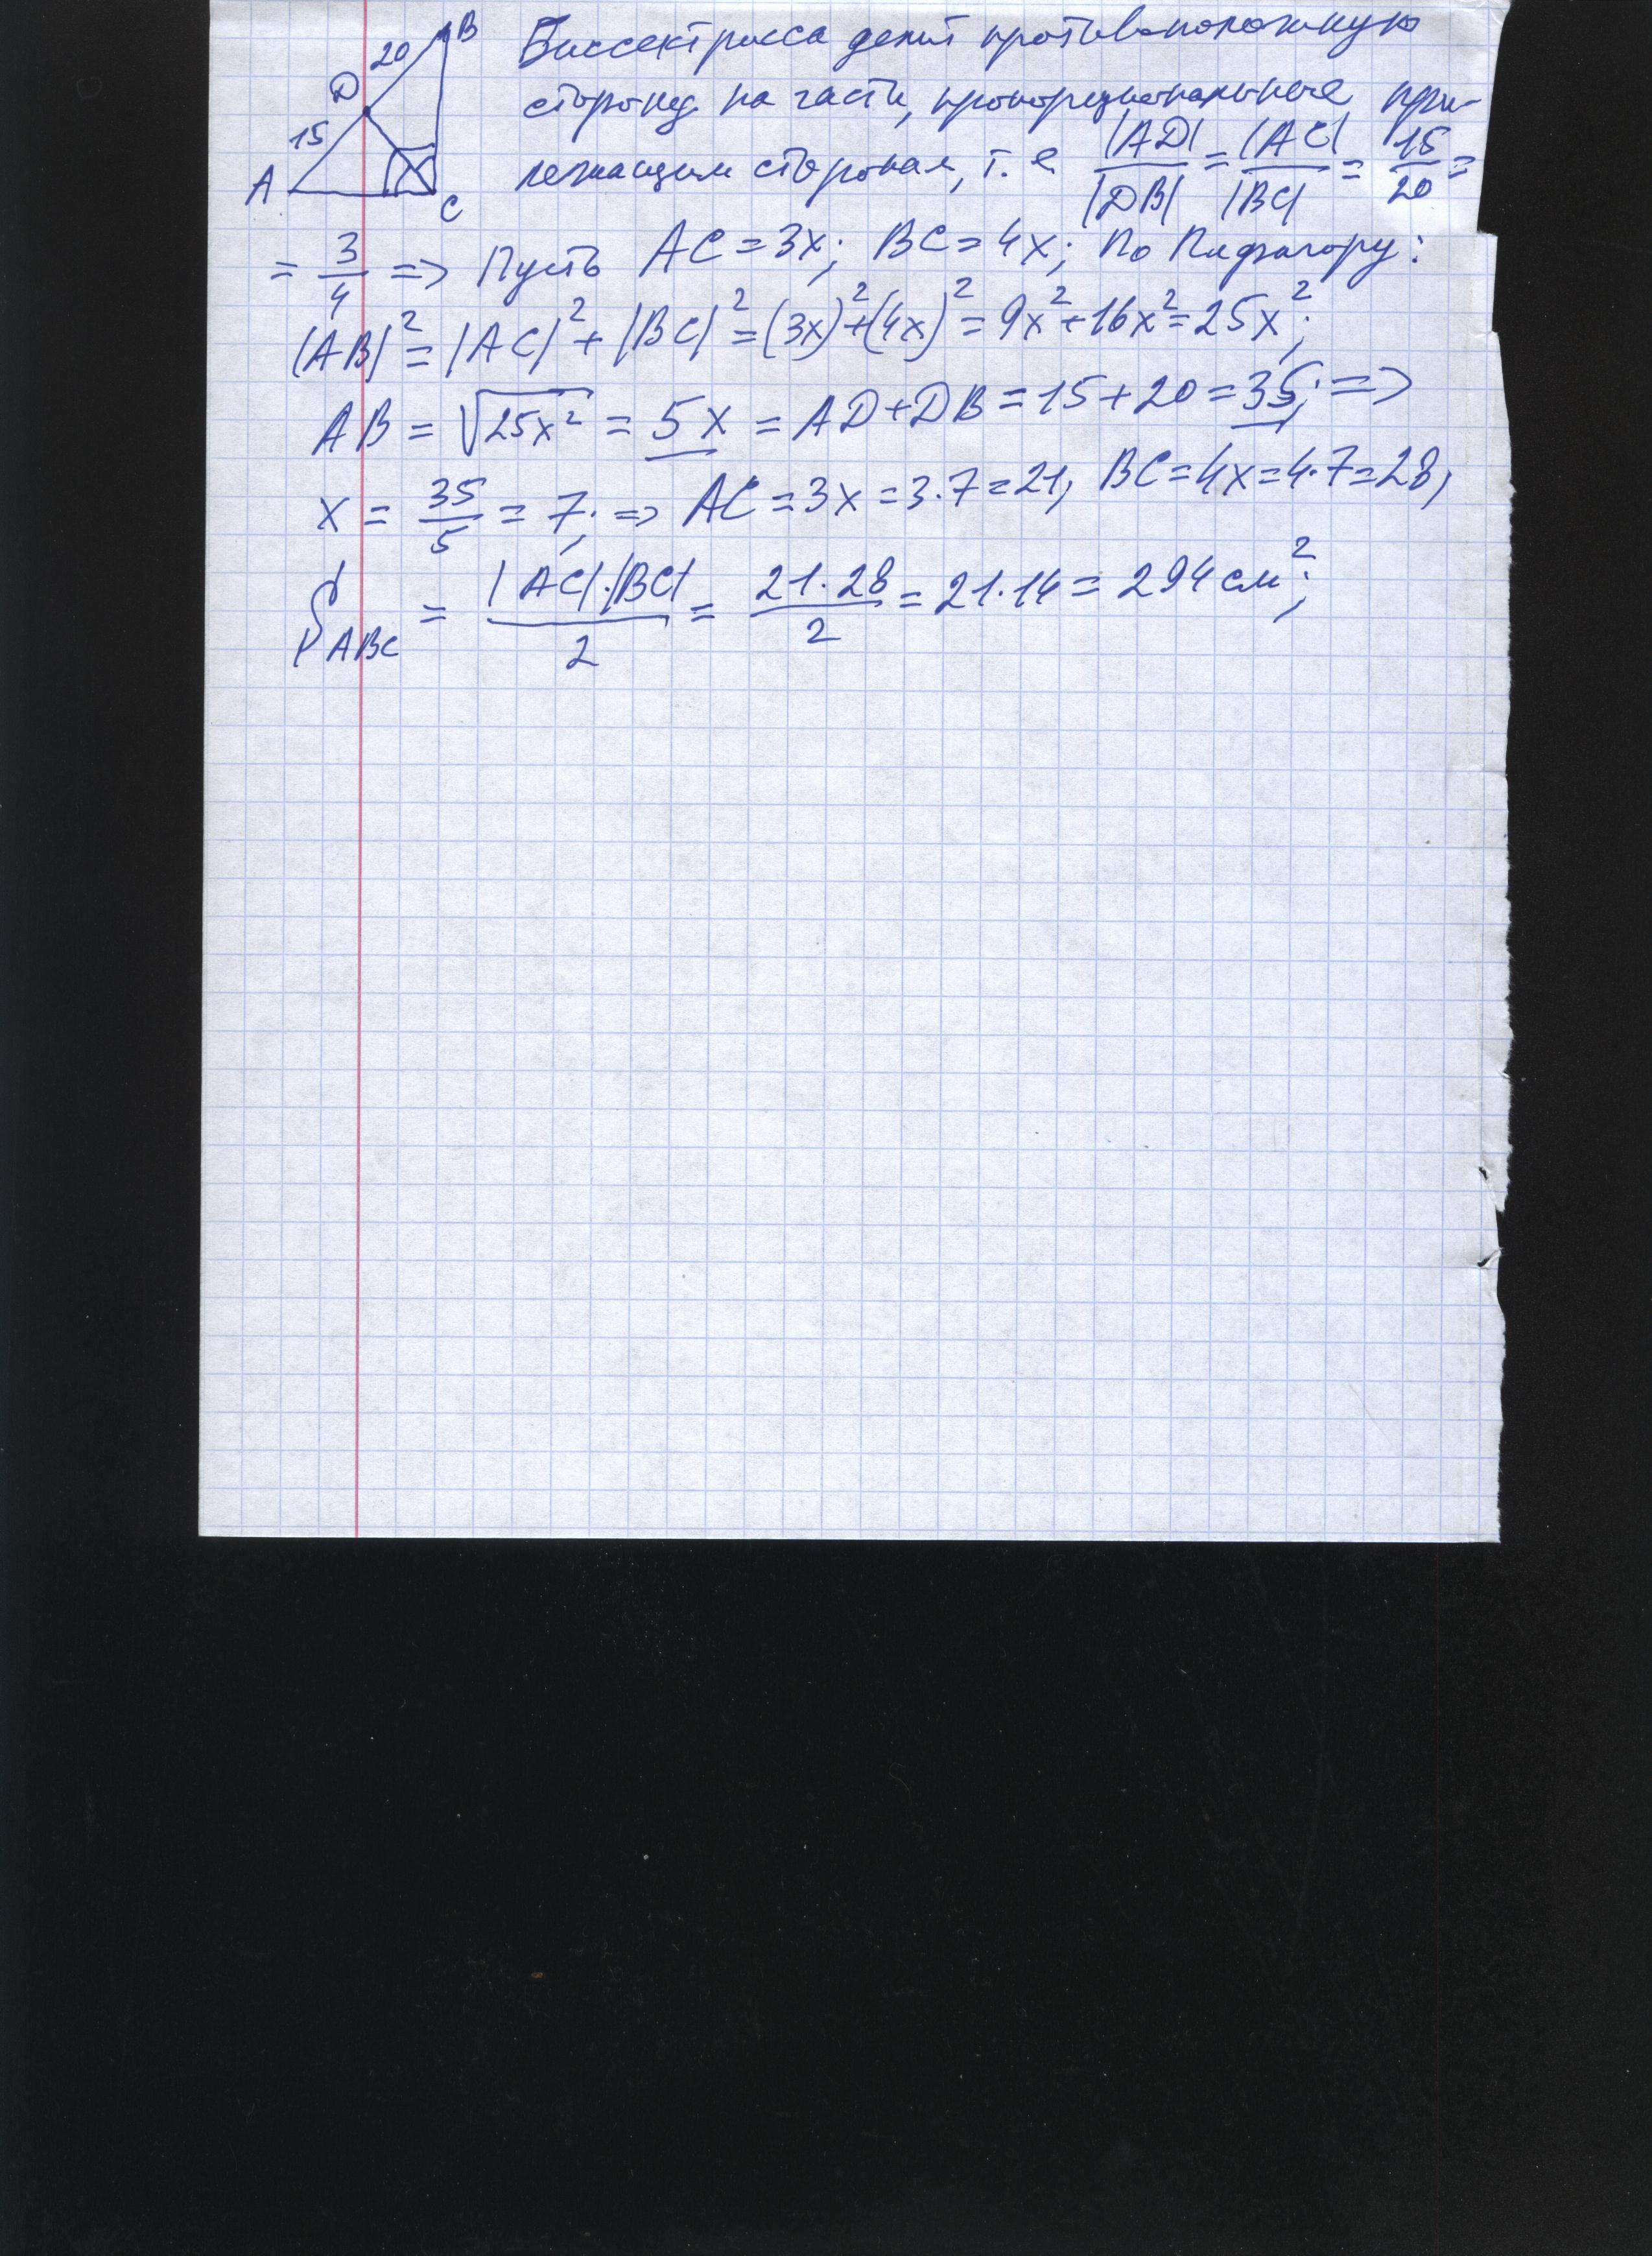 B
20
D
15
A
C
Биссектрисса делит противоположную
сторону на части, пропорциональные при-
лежащим сторонам, т. е |AD|/|DB| = |AC|/|BC| = 15/20 =
= 3/4 => Пусть AC = 3x; BC = 4x; По Пифагору:
|AB|² = |AC|² + |BC|² = (3x)² + (4x)² = 9x² + 16x² = 25x²;
AB = √25x² = 5x = AD + DB = 15 + 20 = 35; =>
x = 35/5 = 7; => AC = 3x = 3·7 = 21, BC = 4x = 4·7 = 28,
S ABC = |AC|·|BC|/2 = 21·28/2 = 21·14 = 294 см²;